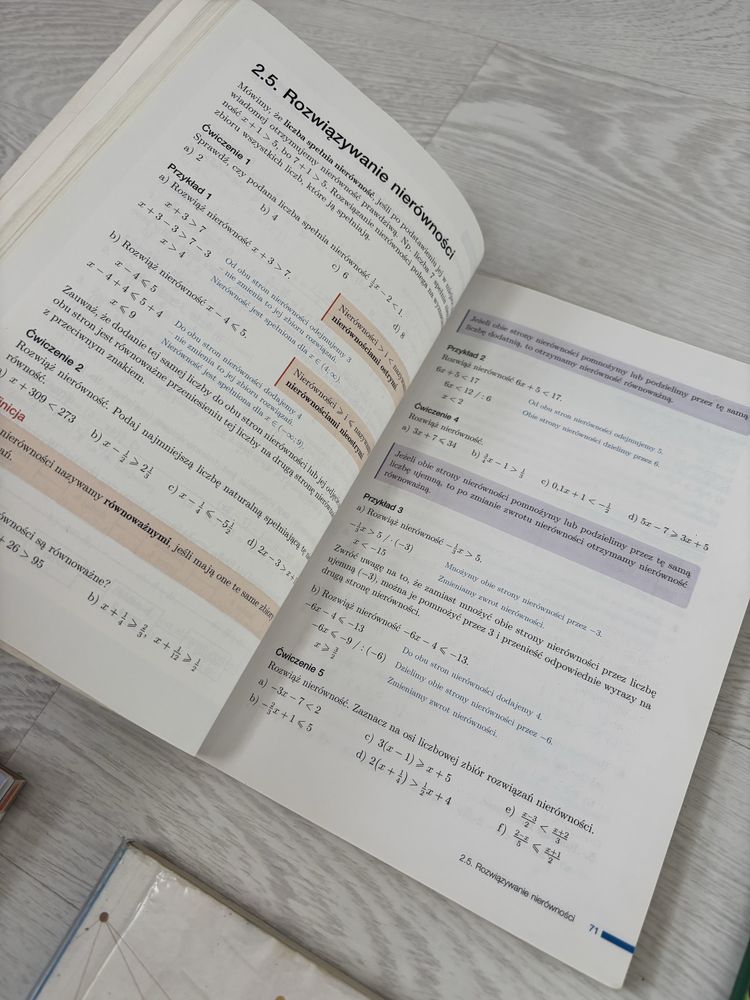 2.5. Rozwiązywanie nierówności
Mówimy, że liczba spełnia nierówność, jeśli po podstawieniu jej w miejsce
wiadomej otrzymujemy nierówność prawdziwą. Np. liczba 7 spełnia
ność x + 1 > 5, bo 7 + 1 > 5. Rozwiązanie nierówności polega na
zbioru wszystkich liczb, które ją spełniają.
Ćwiczenie 1
Sprawdź, czy podana liczba spełnia nierówność ½x − 2 < 1.
a) 2 b) 4 c) 6 d) 8
Przykład 1
a) Rozwiąż nierówność x + 3 > 7.
x + 3 > 7
x + 3 − 3 > 7 − 3 Od obu stron nierówności odejmujemy 3
nie zmienia to jej zbioru rozwiązań.
x > 4 Nierówność jest spełniona dla x ∈ (4; ∞).
Nierówności > i <
nierównościami ostrymi
b) Rozwiąż nierówność x − 4 ⩽ 5.
x − 4 ⩽ 5
x − 4 + 4 ⩽ 5 + 4 Do obu stron nierówności dodajemy 4
nie zmienia to jej zbioru rozwiązań.
x ⩽ 9 Nierówność jest spełniona dla x ∈ (−∞; 9⟩.
Nierówności ⩾ i ⩽
nierównościami nieostrymi
Zauważ, że dodanie tej samej liczby do obu stron nierówności lub jej
obu stron jest równoważne przeniesieniu tej liczby na drugą stronę nierówności
z przeciwnym znakiem.
Ćwiczenie 2
Rozwiąż nierówność. Podaj najmniejszą liczbę naturalną spełniającą tę
równość.
a) x + 309 < 273 b) x − ½ ⩾ 2⅓ c) x − ¼ ⩽ −5½ d) 2x − 3 > x +
inicja
nierówności nazywamy równoważnymi, jeśli mają one te same zbiory
ań.
ówności są równoważne?
+ 26 > 95 b) x + ¼ ⩾ ⅔, x + 1/12 ⩾ ½
Jeżeli obie strony nierówności pomnożymy lub podzielimy przez tę samą
liczbę dodatnią, to otrzymamy nierówność równoważną.
Przykład 2
Rozwiąż nierówność 6x + 5 < 17.
6x + 5 < 17 Od obu stron nierówności odejmujemy 5.
6x < 12 / : 6 Obie strony nierówności dzielimy przez 6.
x < 2
Ćwiczenie 4
Rozwiąż nierówność.
a) 3x + 7 ⩽ 34 c) 0,1x + 1 < −½ d) 5x − 7 ⩾ 3x + 5
Jeżeli obie strony nierówności pomnożymy lub podzielimy przez tę samą
liczbę ujemną, to po zmianie zwrotu nierówności otrzymamy nierówność
równoważną.
Przykład 3
a) Rozwiąż nierówność −⅓x > 5.
−⅓x > 5 / · (−3) Mnożymy obie strony nierówności przez −3.
x < −15 Zmieniamy zwrot nierówności.
Zwróć uwagę na to, że zamiast mnożyć obie strony nierówności przez liczbę
ujemną (−3) można je pomnożyć przez 3 i przenieść odpowiednie wyrazy na
drugą stronę nierówności.
b) Rozwiąż nierówność −6x − 4 ⩽ −13.
−6x − 4 ⩽ −13 Do obu stron nierówności dodajemy 4.
−6x ⩽ −9 / : (−6) Dzielimy obie strony nierówności przez −6.
x ⩾ 3/2 Zmieniamy zwrot nierówności.
Ćwiczenie 5
Rozwiąż nierówność. Zaznacz na osi liczbowej zbiór rozwiązań nierówności.
a) −3x − 7 < 2 c) 3(x − 1) ⩾ x + 5 e) (x−3)/2 < (x+2)/3
b) −⅔x + 1 ⩽ 5 d) 2(x + ¼) > ½x + 4 f) (2−x)/5 ⩽ (x+1)/2
2.5. Rozwiązywanie nierówności 71